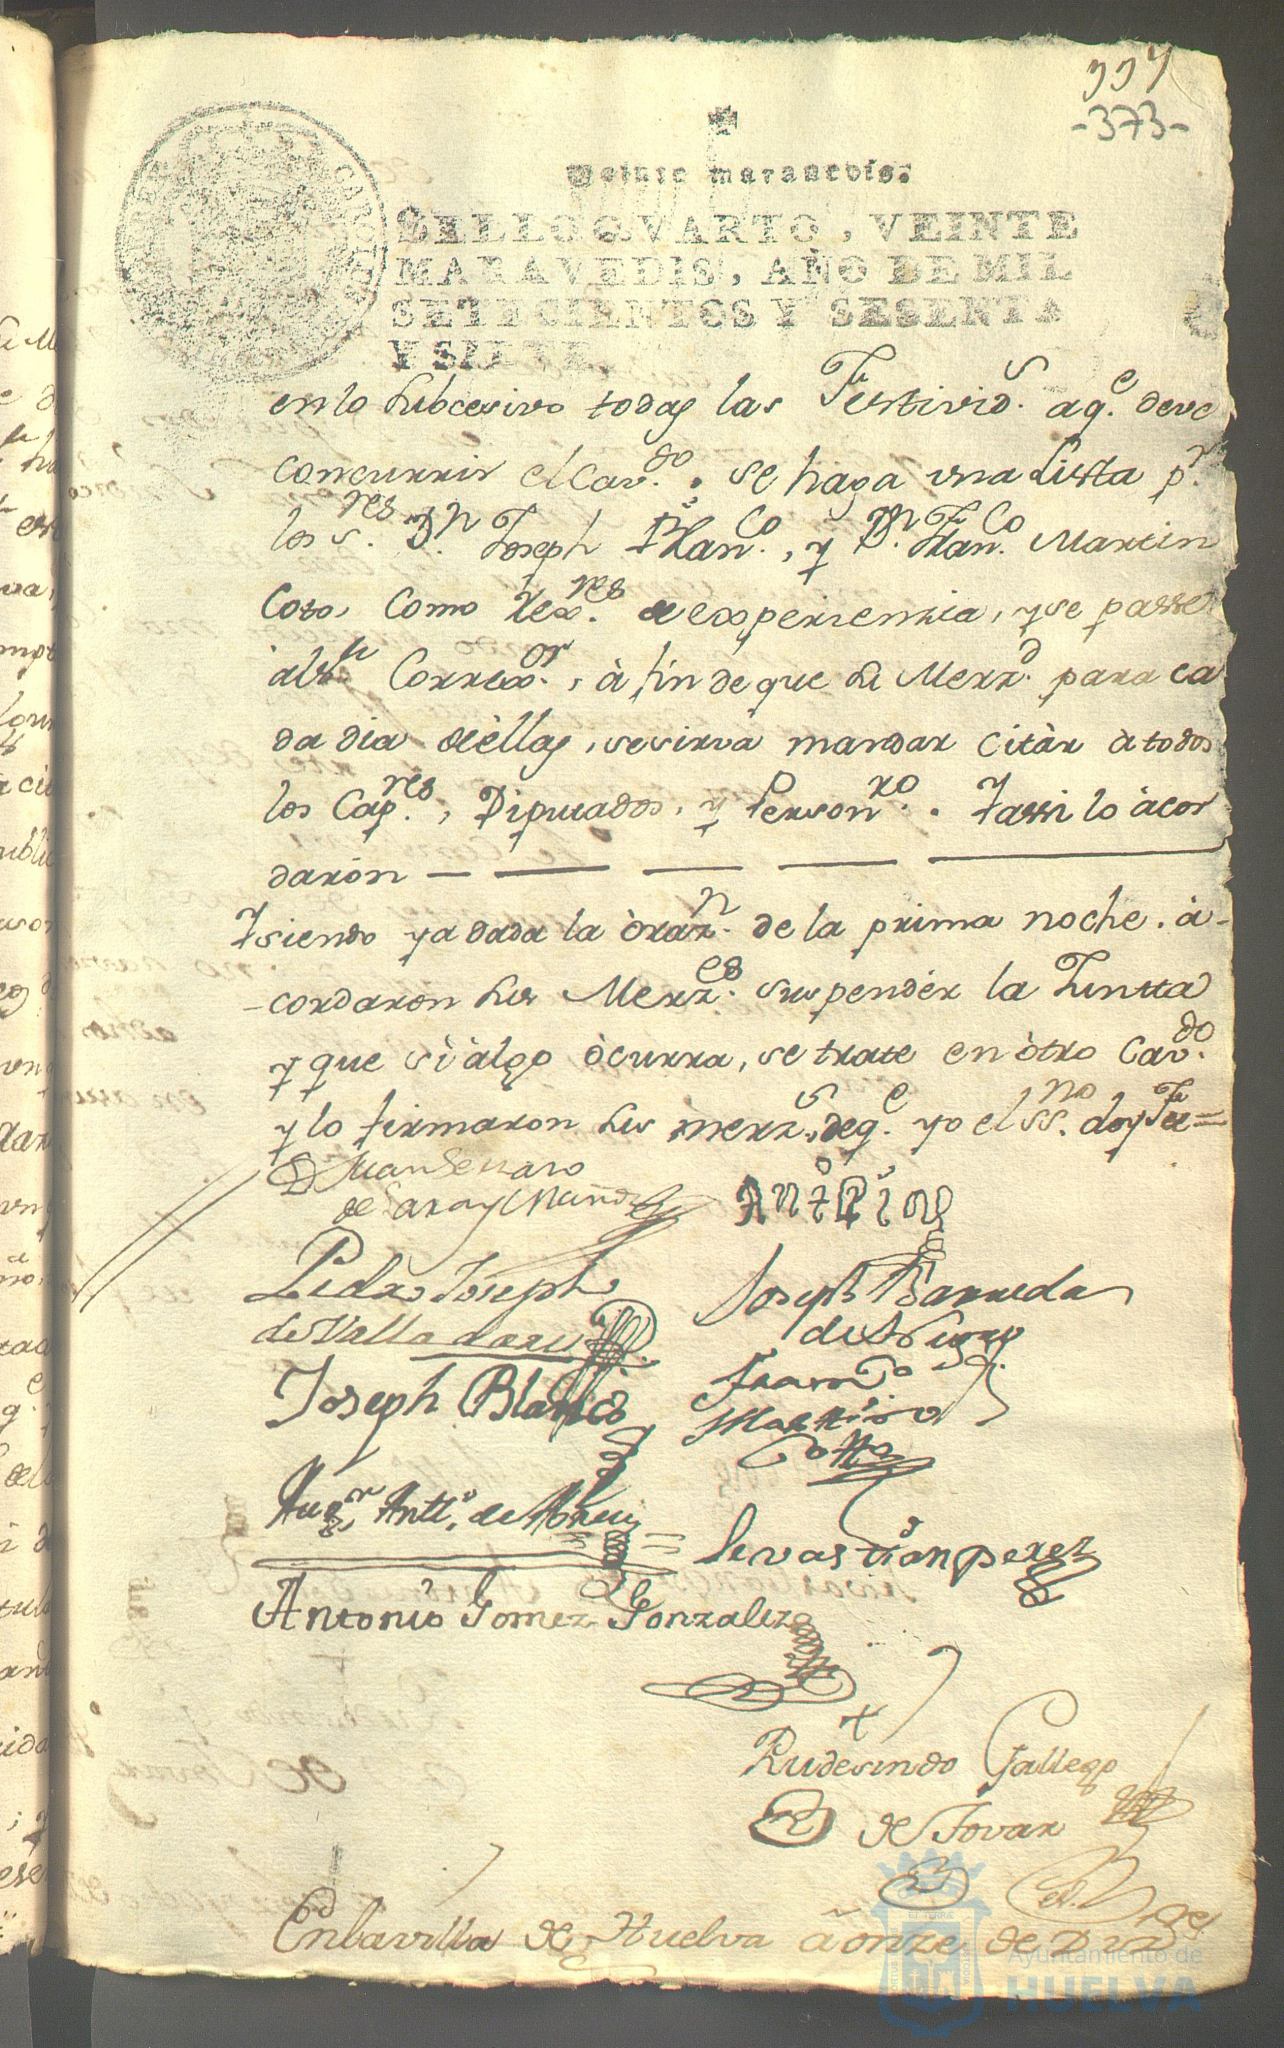 -373-
Veinte maravedis.
SELLO QVARTO, VEINTE
MARAVEDIS, AÑO DE MIL
SETECIENTOS Y SESENTA
Y SIETE.
en lo subcesivo todas las Festivid.s a q.e deve
concurrir el Cav.do, se haga una Lista p.r
los S.res D.n Joseph Blan.co, y D.n Fran.co Martin
Coto, como Rex.res de experienzia, y se passe
al S.r Correx.or, à fin de que su Merz.d para ca
da dia de èllas, se sirva mandar citàr a todos
los Cap.res, Diputados, y Person.ro. Y assi lo àcor
daron
Y siendo ya dada la òraz.n de la prima noche. à-
-cordaron sus Merz.es suspendér la Junta
y que si àlgo òcurra, se trate en òtro Cav.do
y lo firmaron sus merz.s, de q.e yo el ss.no doy Fe=
D Juan
de Garay
Pedro Joseph
de Valladares
Joseph Barreda
Joseph Blanco
Fran.co
Martin
Cotto
Aug.n Antt.o de Abreu
Sevastian perez
Antonio Gomez Gonzalez
Rudesindo Gallego
de Tovar
En la villa de Huelva à onze de
Ayuntamiento de
HUELVA